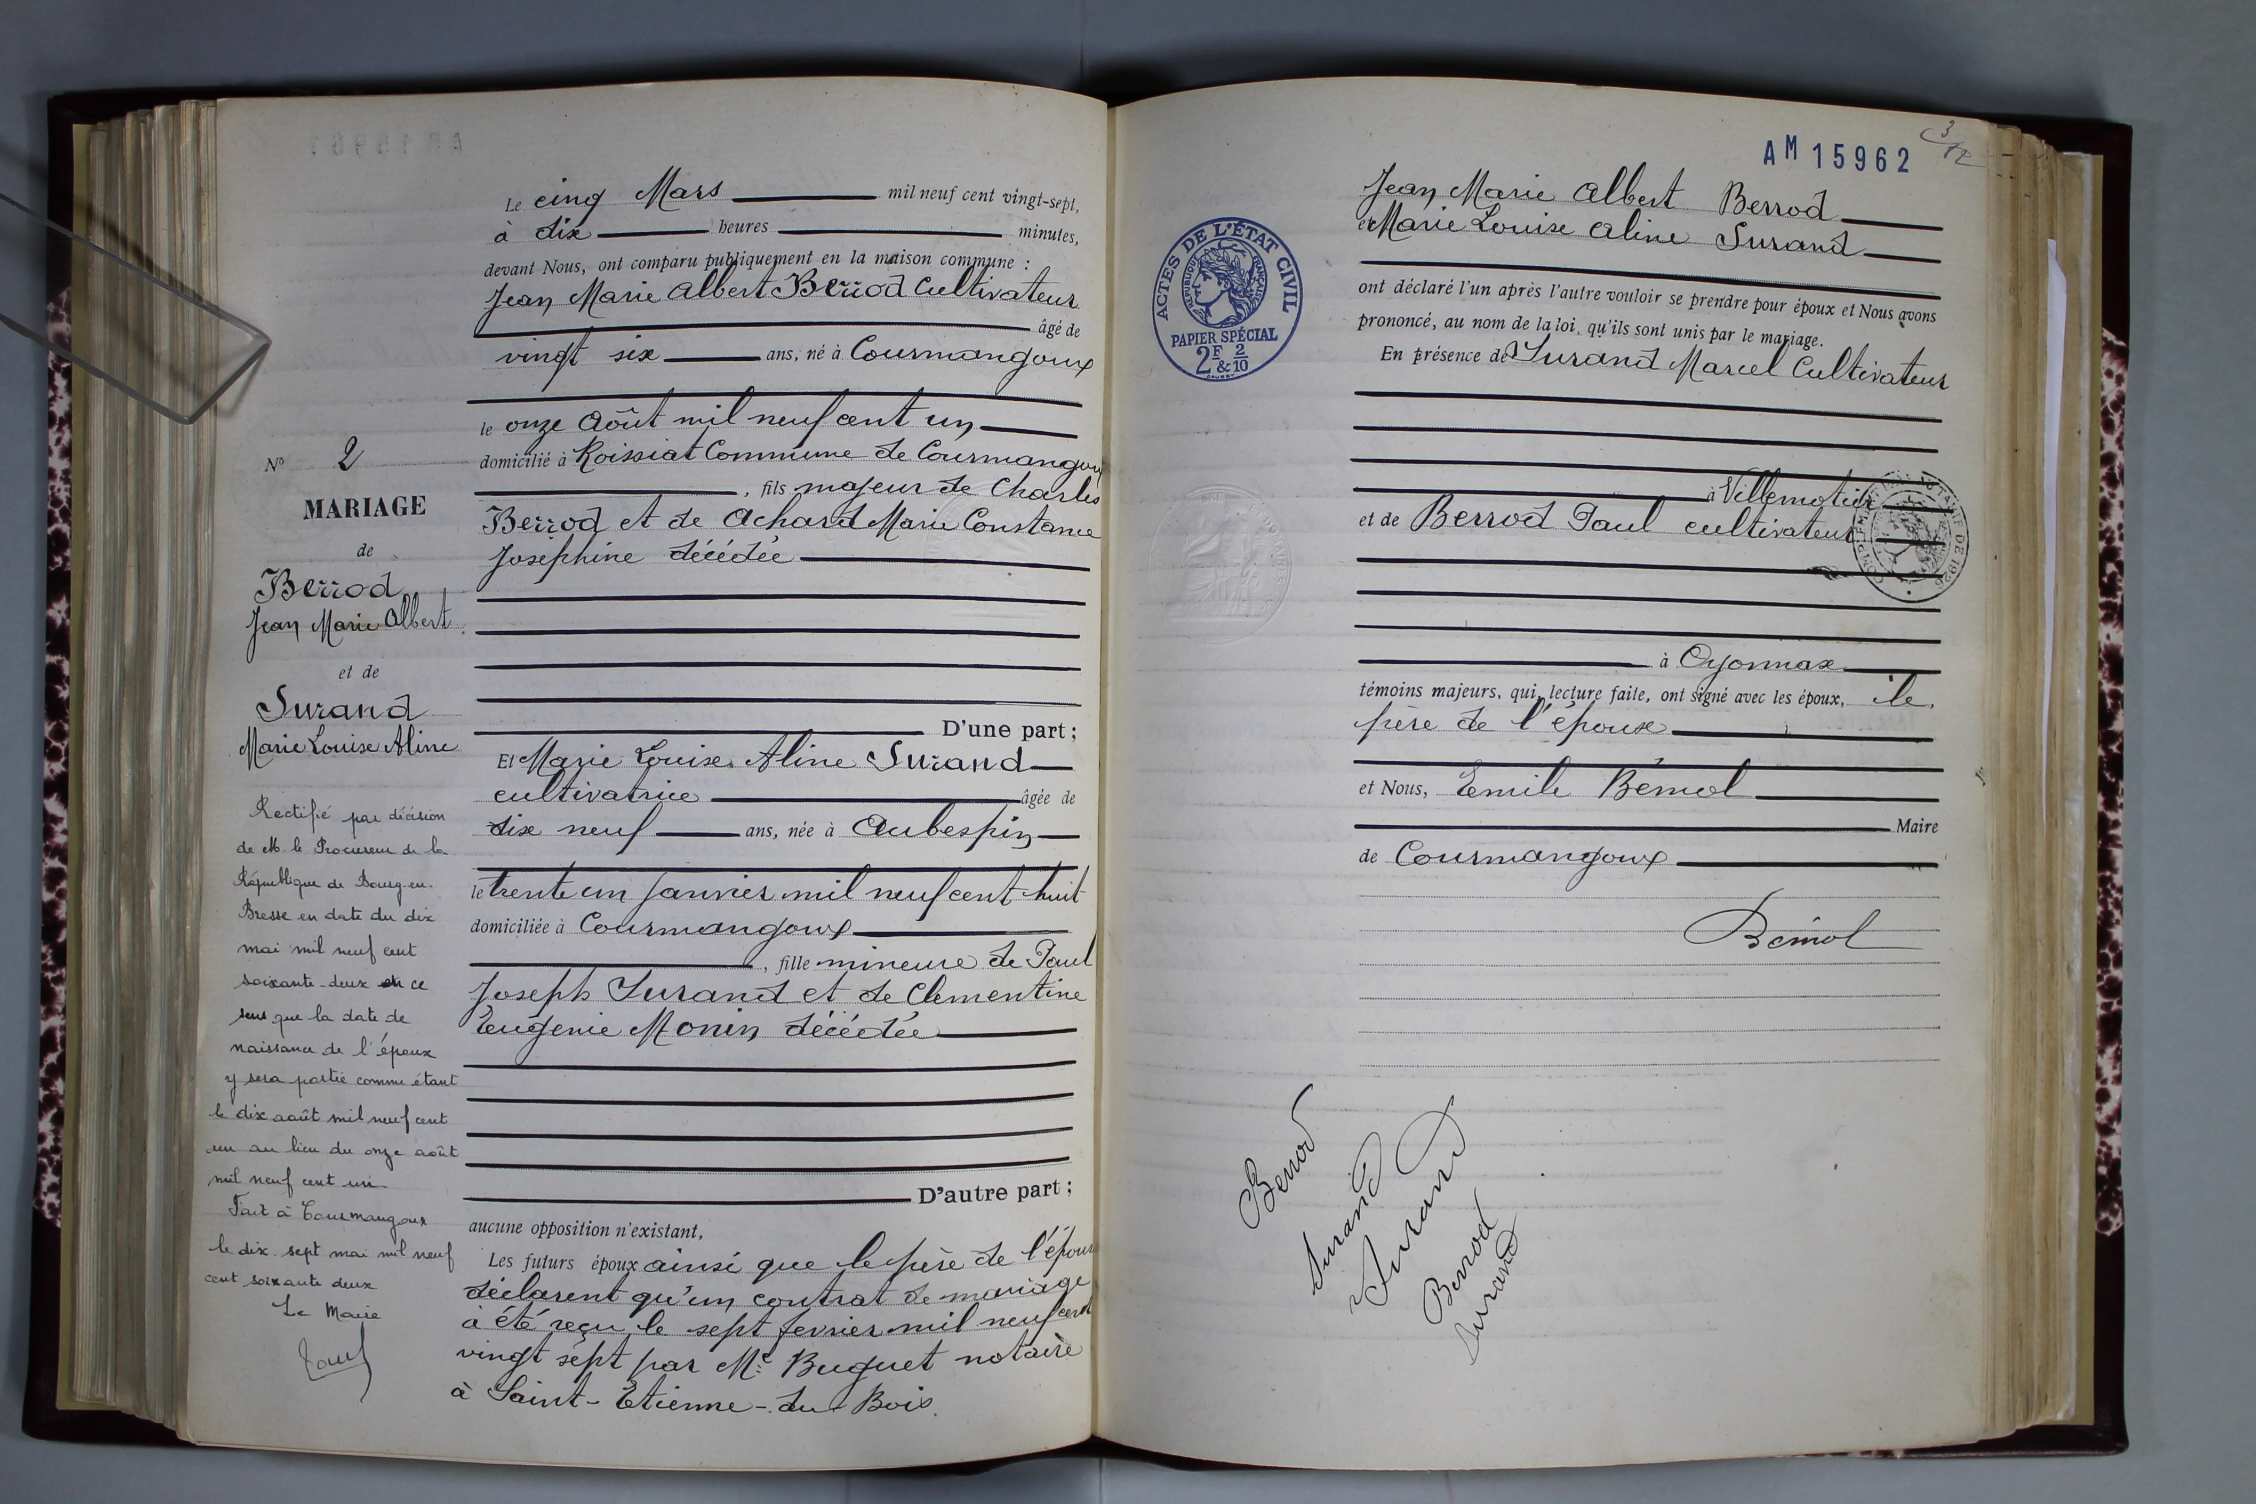 Le cinq Mars mil neuf cent vingt-sept,
à dix heures minutes,
devant Nous, ont comparu publiquement en la maison commune :
Jean Marie Albert Berrod Cultivateur
âgé de
vingt six ans, né à Courmangoux
le onze Août mil neuf cent un
domicilié à Roissiat Commune de Courmangoux
, fils majeur de Charles
Berrod et de Achard Marie Constance
Joséphine décédée
D'une part ;
Et Marie Louise Aline Surand
cultivatrice âgée de
dix neuf ans, née à Aubespin
le trente un Janvier mil neuf cent huit
domiciliée à Courmangoux
, fille mineure de Paul
Joseph Surand et de Clementine
Eugenie Monin décédée
D'autre part ;
aucune opposition n'existant,
Les futurs époux ainsi que le père de l'épouse
déclarent qu'un contrat de mariage
a été reçu le sept fevrier mil neuf cent
vingt sept par Me Buguet notaire
à Saint-Etienne-du-Bois.
No 2
MARIAGE
de
Berrod
Jean Marie Albert
et de
Surand
Marie Louise Aline
Rectifié par décision
de M. le Procureur de la
République de Bourg-en-
Bresse en date du dix
mai mil neuf cent
soixante-deux en ce
sens que la date de
naissance de l'époux
y sera portée comme étant
le dix août mil neuf cent
un au lieu du onze août
mil neuf cent un
Fait à Courmangoux
le dix-sept mai mil neuf
cent soixante deux
Le Maire
AM 15962
ACTES DE L'ÉTAT CIVIL
RÉPUBLIQUE FRANÇAISE
PAPIER SPÉCIAL
2F & 2/10
Jean Marie Albert Berrod
et Marie Louise Aline Surand
ont déclaré l'un après l'autre vouloir se prendre pour époux et Nous avons
prononcé, au nom de la loi, qu'ils sont unis par le mariage.
En présence de Surand Marcel Cultivateur
à Villemotier
et de Berrod Paul cultivateur
à Oyonnax
témoins majeurs, qui, lecture faite, ont signé avec les époux, le
père de l'épouse
et Nous, Emile Bémol
Maire
de Courmangoux
Bémol
Berrod
Surand
Surand
Berrod
Surand